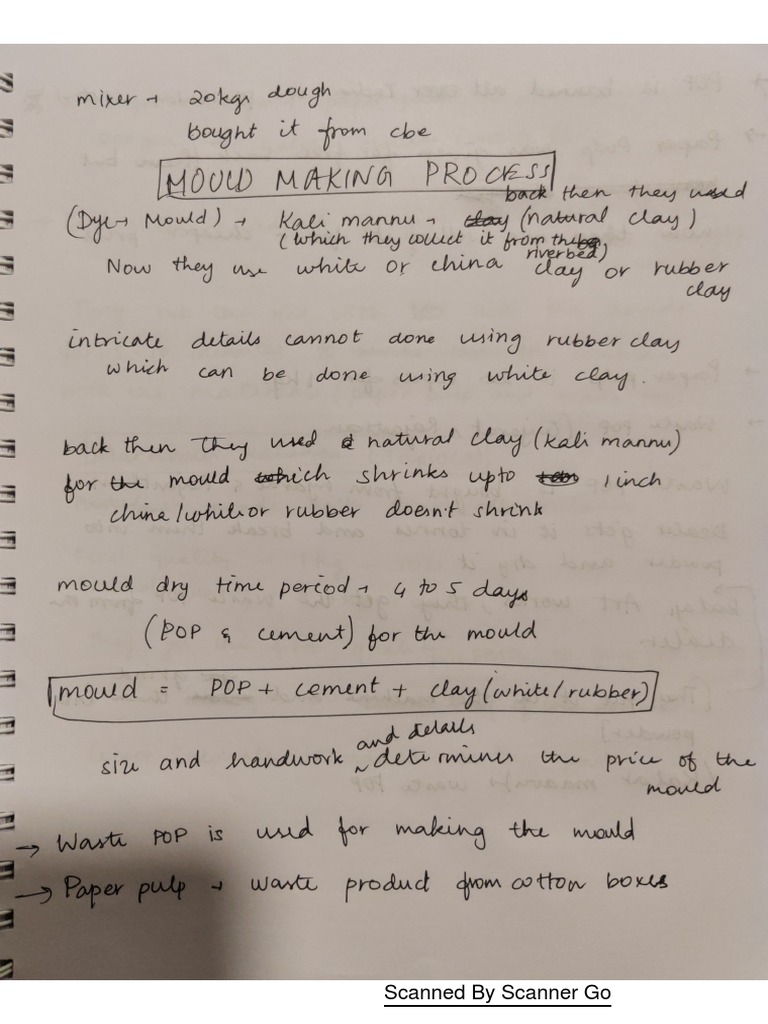 mixer → 20kgs dough
bought it from cbe
MOULD MAKING PROCESS
back then they used
(Dye → Mould) → Kali mannu → clay (natural clay)
(which they collect it from the riverbed)
Now they use white or china clay or rubber
clay
intricate details cannot done using rubber clay
which can be done using white clay.
back then they used natural clay (kali mannu)
for the mould which shrinks upto 1 inch
china/white or rubber doesn't shrink
mould dry time period → 4 to 5 days
(POP & cement) for the mould
mould = POP + cement + clay (white/rubber)
and details
size and handwork determines the price of the
mould
→ Waste POP is used for making the mould
→ Paper pulp → waste product from cotton boxes
Scanned By Scanner Go